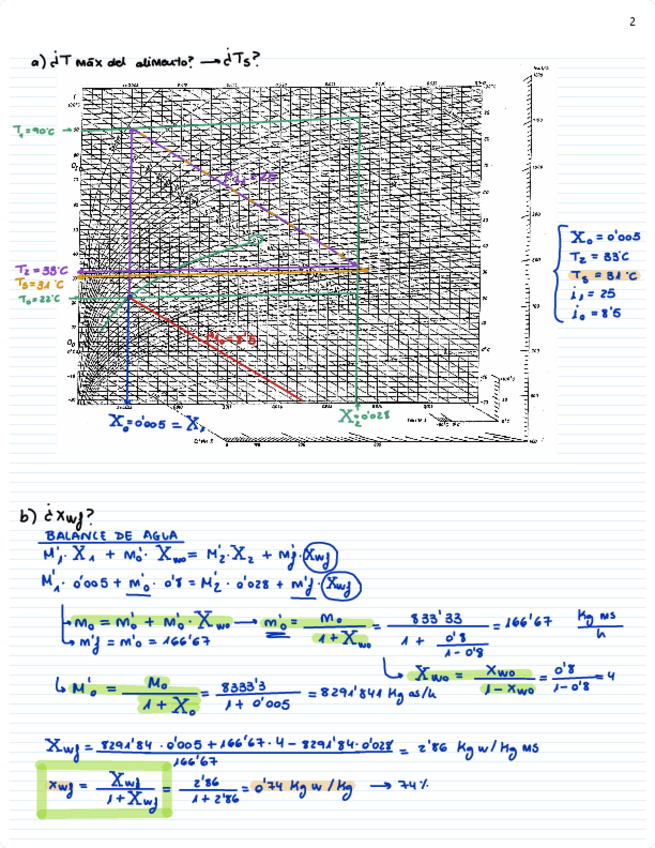 2
a) ¿T máx del alimento? → ¿Ts?
T₁ = 90°C
T₂ = 33°C
Ts = 31°C
T₀ = 22°C
X₀ = 0'005
T₂ = 33°C
Ts = 31°C
i₁ = 25
i₀ = 8'5
X₀ = 0'005 = X₁
X₂ = 0'028
b) ¿xwf?
BALANCE DE AGUA
M'₁ · X₁ + m'₀ · Xwo = M'₂ · X₂ + m'f · Xwf
M'₁ · 0'005 + m'₀ · 0'8 = M'₂ · 0'028 + m'f · Xwf
m₀ = m'₀ + m'₀ · Xwo → m'₀ = m₀ / (1 + Xwo) = 833'33 / (1 + 0'8 / (1 - 0'8)) = 166'67 Kg MS / h
m'f = m'₀ = 166'67
Xwo = xwo / (1 - xwo) = 0'8 / (1 - 0'8) = 4
M'₀ = M₀ / (1 + X₀) = 8333'3 / (1 + 0'005) = 8291'841 Kg as/h
Xwf = (8291'84 · 0'005 + 166'67 · 4 - 8291'84 · 0'028) / 166'67 = 2'86 Kg w / Kg MS
xwf = Xwf / (1 + Xwf) = 2'86 / (1 + 2'86) = 0'74 Kg w / Kg → 74%